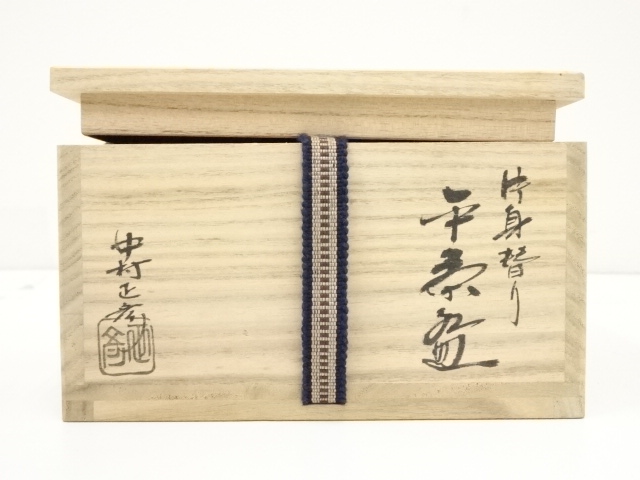 片身替り
平茶盌
中村正彦